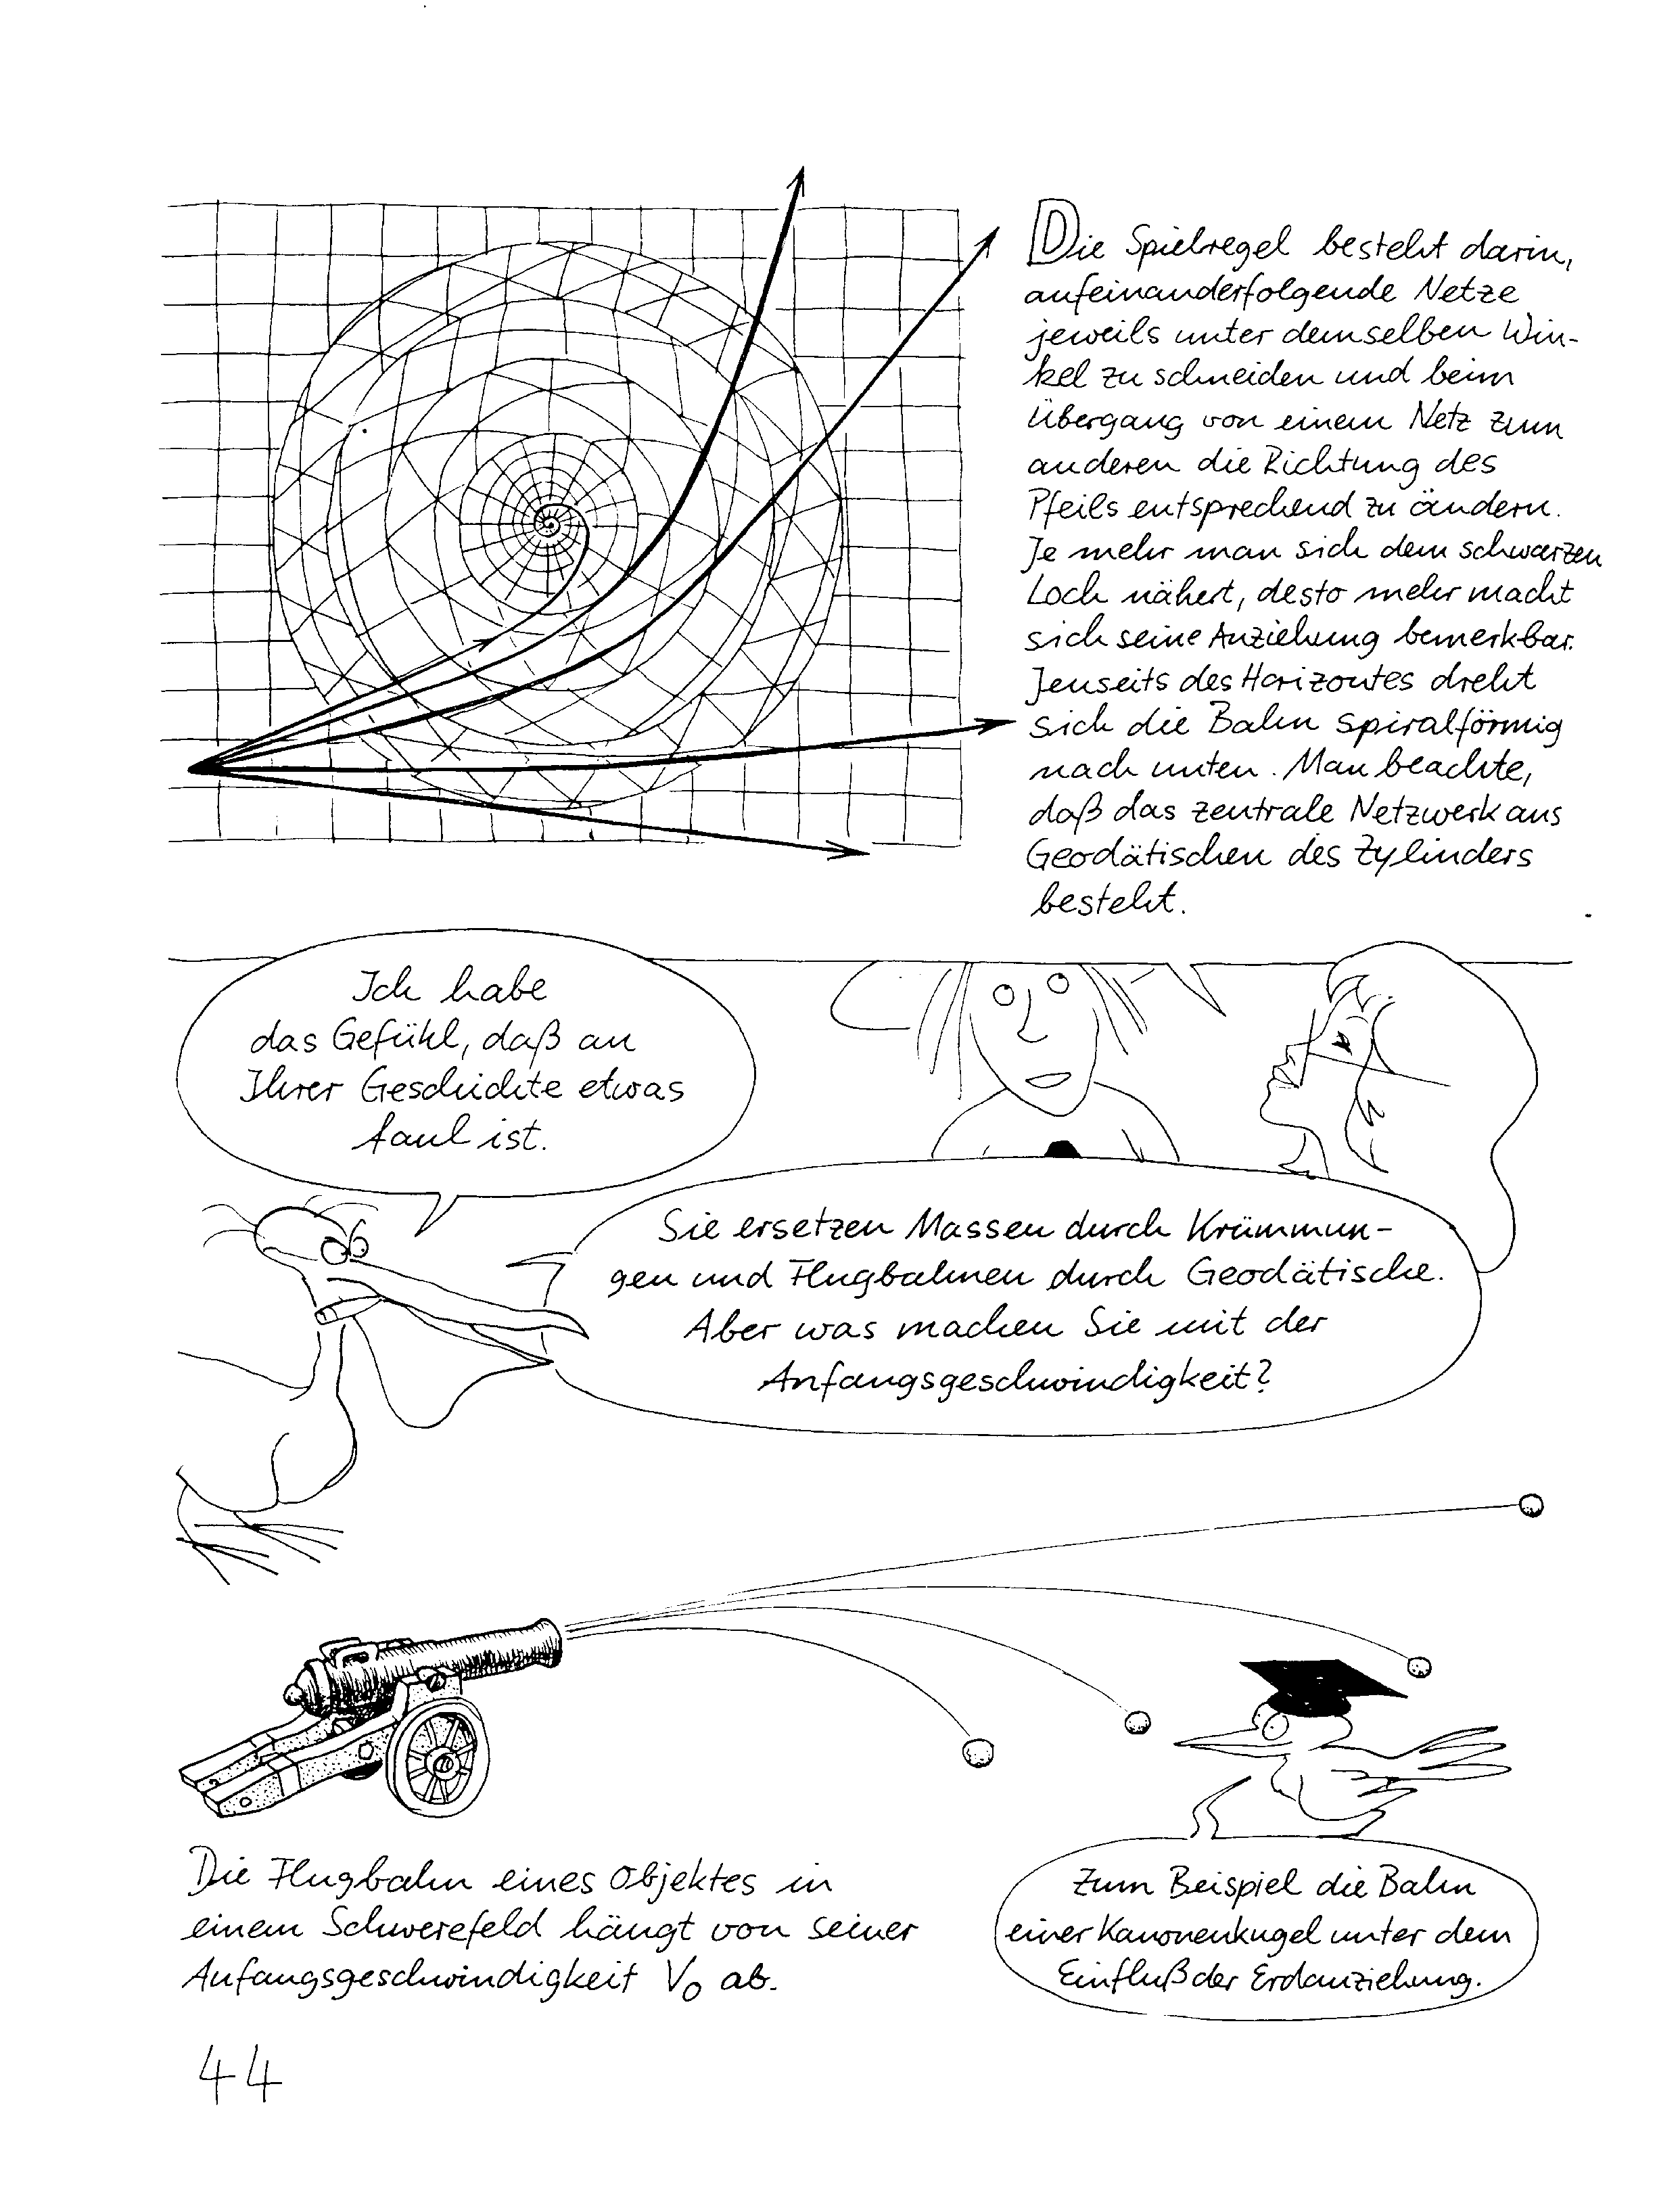 Die Spielregel besteht darin,
aufeinanderfolgende Netze
jeweils unter demselben Win-
kel zu schneiden und beim
Übergang von einem Netz zum
anderen die Richtung des
Pfeils entsprechend zu ändern.
Je mehr man sich dem schwarzen
Loch nähert, desto mehr macht
sich seine Anziehung bemerkbar.
Jenseits des Horizontes dreht
sich die Bahn spiralförmig
nach unten. Man beachte,
daß das zentrale Netzwerk aus
Geodätischen des Zylinders
besteht.
Ich habe
das Gefühl, daß an
Ihrer Geschichte etwas
faul ist.
Sie ersetzen Massen durch Krümmun-
gen und Flugbahnen durch Geodätische.
Aber was machen Sie mit der
Anfangsgeschwindigkeit?
Die Flugbahn eines Objektes in
einem Schwerefeld hängt von seiner
Anfangsgeschwindigkeit V₀ ab.
Zum Beispiel die Bahn
einer Kanonenkugel unter dem
Einfluß der Erdanziehung.
44